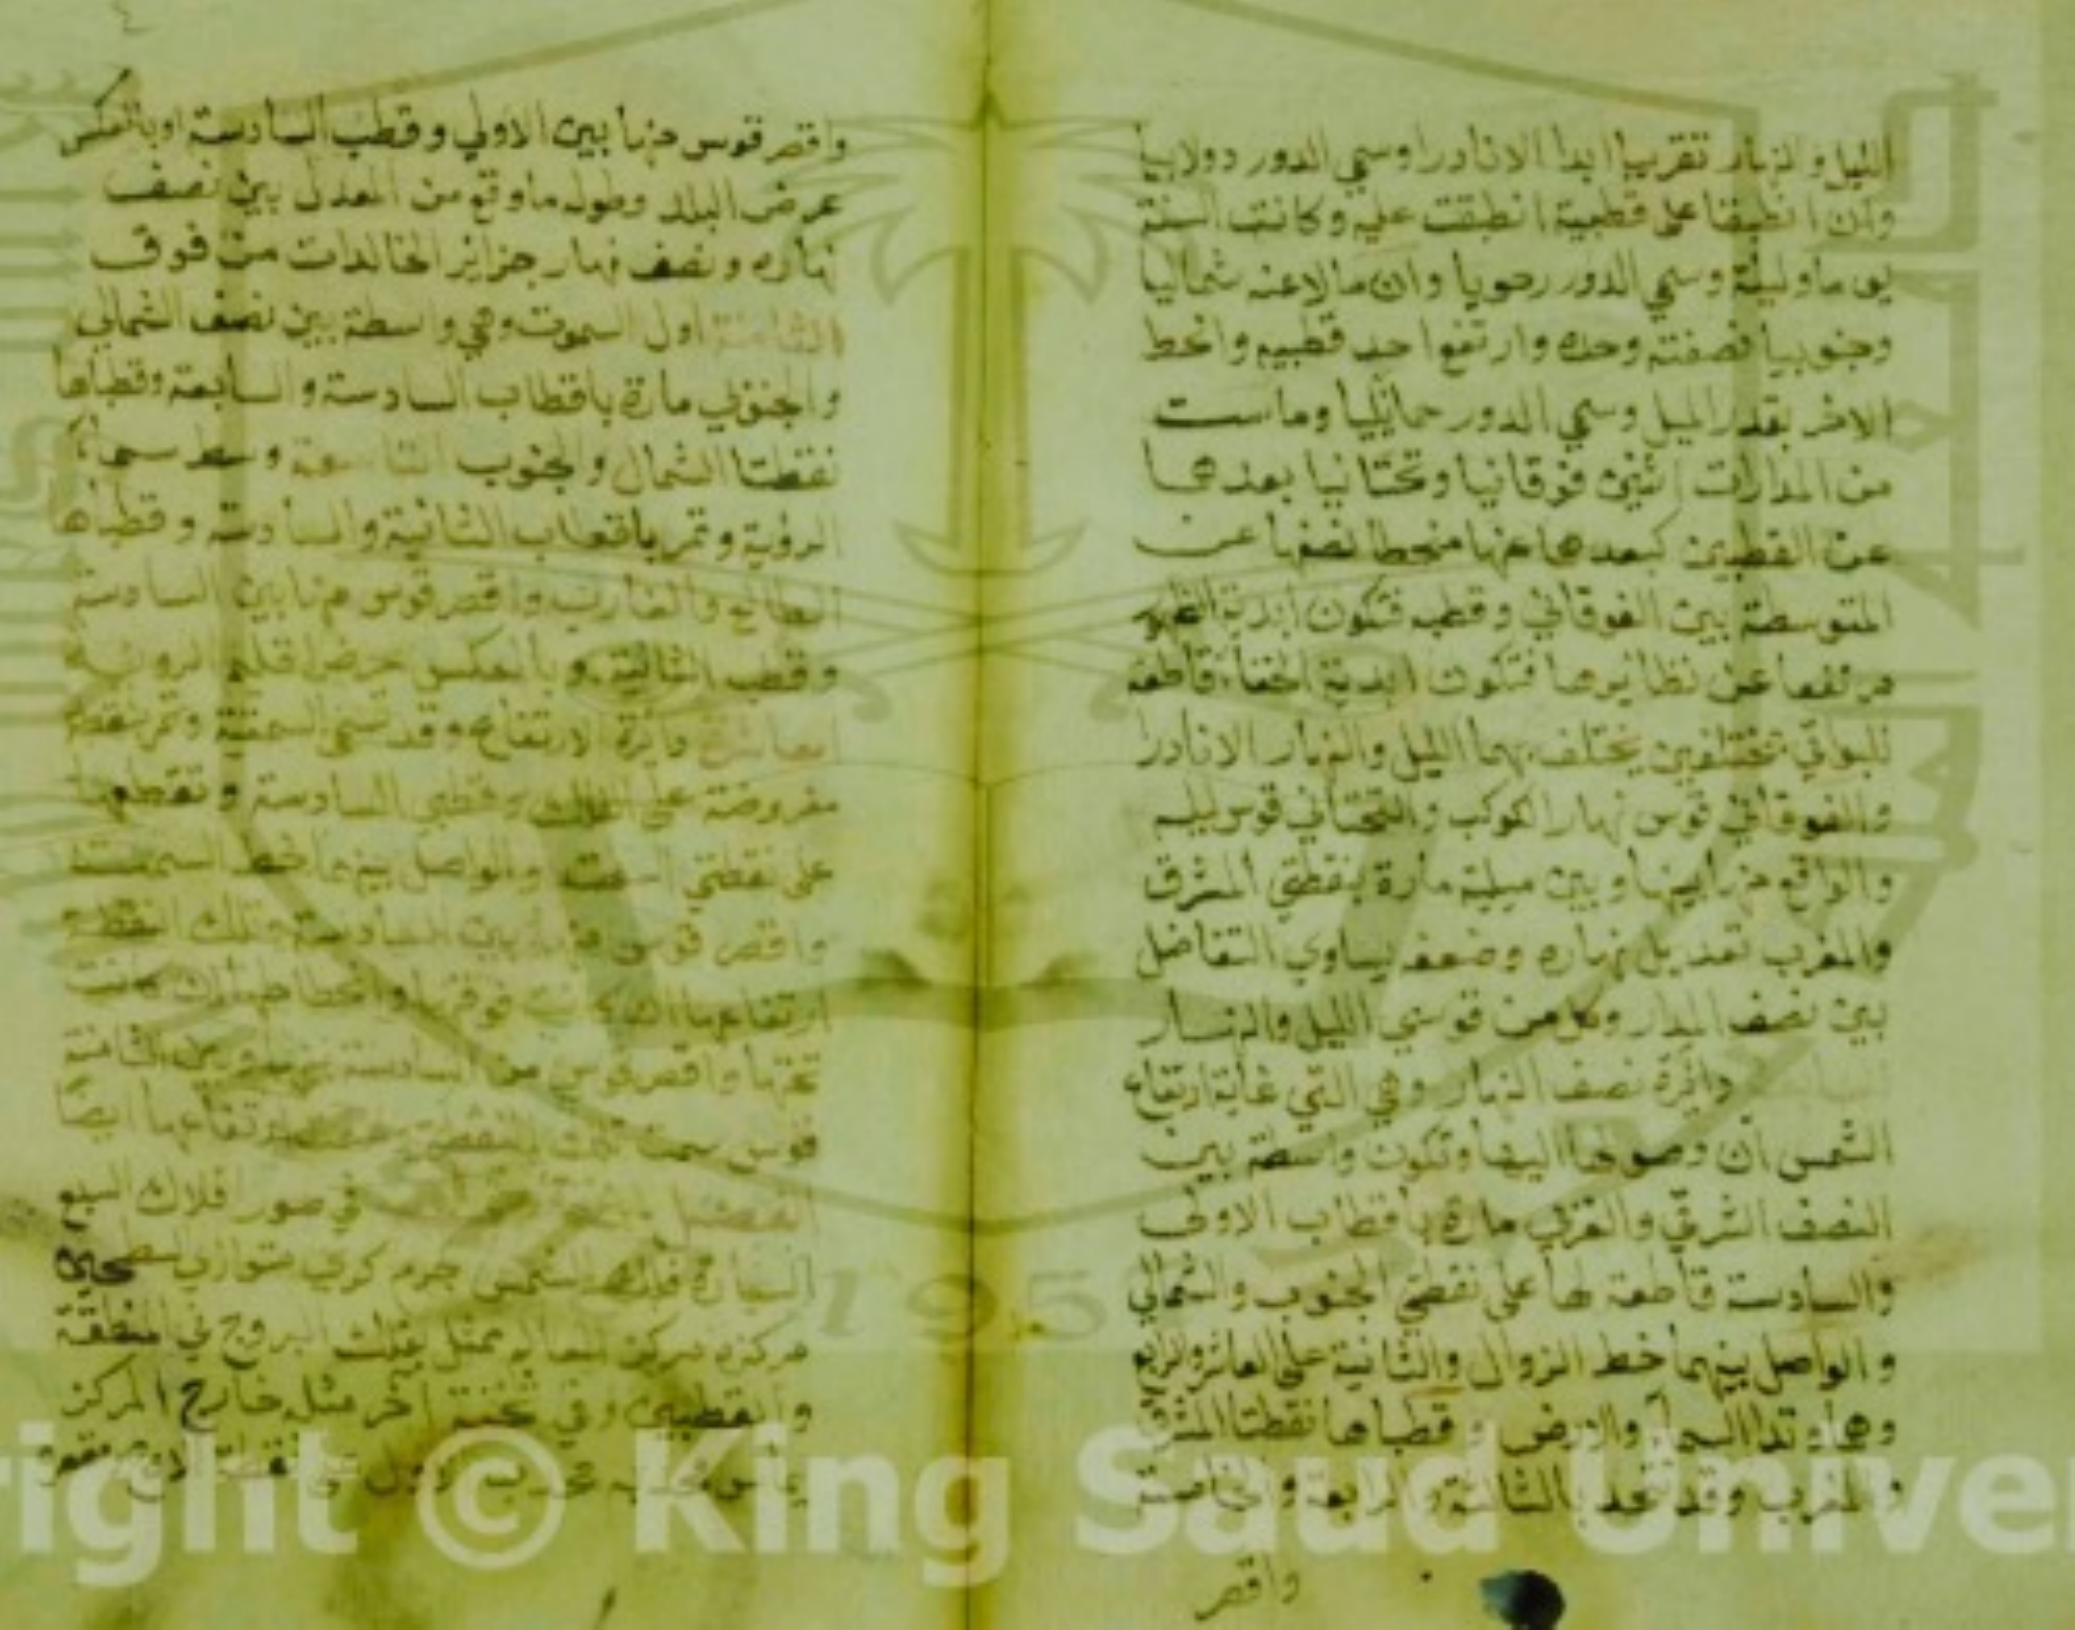 الليل والنهار تقريبا ابدا الا نادرا وسمي الدور دولابيا
وان انطبقا على قطبية انطبقت عليه وكانت السنة
يوما وليلة وسمي الدور رحويا وان مالا عنه شماليا
وجنوبيا فصفته وحده وارتفع احد قطبيه وانحط
الاخر بقدر الميل وسمي الدور حمايليا وماست
من المدارات اثنين فوقانيا وتحتانيا بعدهما
عن القطبين كبعدها عنها منحطا نصفها عن
المتوسطة بين الفوقاني وقطبه فتكون ابدية الظهور
مرتفعا عن نظايرها فتكون ابدية الخفاء قاطعة
للبواقي مختلفين يختلف بهما الليل والنهار الا نادرا
والفوقاني قوس نهار الكوكب والتحتاني قوس ليله
والواقع من ايها وبين ميلية مارة بنقطتي المشرق
والمغرب تعديل نهاره وضعفه يساوي التفاضل
بين نصف المدار وكل من قوسي الليل والنهار
دائرة نصف النهار وهي التي غاية ارتفاع
الشمس آن وصولها اليها وتكون واسطة بين
النصف الشرقي والغربي مارة باقطاب الاولى
والسادسة قاطعة لها على نقطتي الجنوب والشمال
والواصل بينهما خط الزوال والثانية على العاشر والرابع
وهما وتدا السماء والارض وقطباها نقطتا المشرق
والمغرب وقد تحد بالثالثة والرابعة والخامسة
واقصر
واقصر قوس منها بين الاولي وقطب السادسة او بالعكس
عرض البلد وطوله ما وقع من المعدل بين نصف
نهاره ونصف نهار جزائر الخالدات من فوق
الثامنة اول السموت وهي واسطة بين نصف الشمالي
والجنوبي مارة باقطاب السادسة والسابعة وقطباها
نقطتا الشمال والجنوب التاسعة وسط سماء
الرؤية وتمر باقطاب الثانية والسادسة وقطباها
الطالع والغارب واقصر قوس منها بين السادسة
وقطب الثانية وبالعكس عرض اقليم الرؤية
العاشرة دائرة الارتفاع وقد تسمى السمتية وتمر بنقطة
مفروضة على الفلك وبقطبي السادسة وتقطعها
على نقطتي السمت والواصل بينهما خط السمت
واقصر قوس منها بين السادسة وتلك النقطة
ارتفاعها ان كانت فوقها وانحطاطها ان كانت
تحتها واقصر قوس من السادسة بينها وبين الثامنة
قوس سمت تلك النقطة ارتفاعها ايضا
الفصل في صور افلاك السبع
السيارة فلك الشمس جرم كري متوازي السطحين
مركزه مركز العالم يمثل فلك البروج في المنطقة
والقطبين وفي ثخنه اخر مثله خارج المركز
يماس محدبه محدب الاول